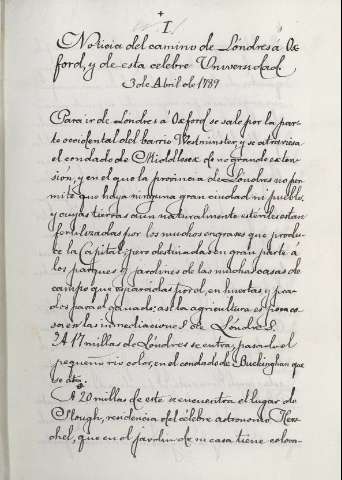 I
Noticia del camino de Lóndres á Ox
ford, y de esta celebre Universidad
3 de Abril de 1789
Para ir de Londres á Oxford se sale por la par-
te occidental del barrio Westminster y se atraviesa
el condado de Middlesex de no grande exten-
sion, y en el que la provincia de Londres no per-
mite que haya ninguna gran ciudad ni pueblo,
y cuyas tierras aun naturalmente esteriles estan
fertilizadas por los muchos engrases que produ-
ce la Capital; pero destinadas en gran parte á
los parques y jardines de las muchas casas de
campo que esparcidas por el, en huertas y pra-
dos para el ganado; asi la agricultura es poca co-
sa en las inmediaciones de Londres.
A 17 millas de Londres se entra, pasado el
pequeño rio Color, en el condado de Buckingham que
A 20 millas de este se encuentra el lugar de
Slough, residencia del célebre astronomo Hers-
chel, que en el jardin de su casa tiene coloca-